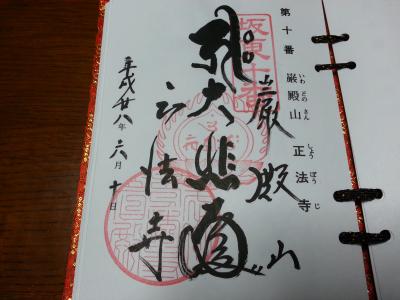 第十番 巌殿山 正法寺
いわ どの さん しょう ぼう じ
坂東十番
巌殿山
大悲殿
正法寺
平成廿八年六月十日